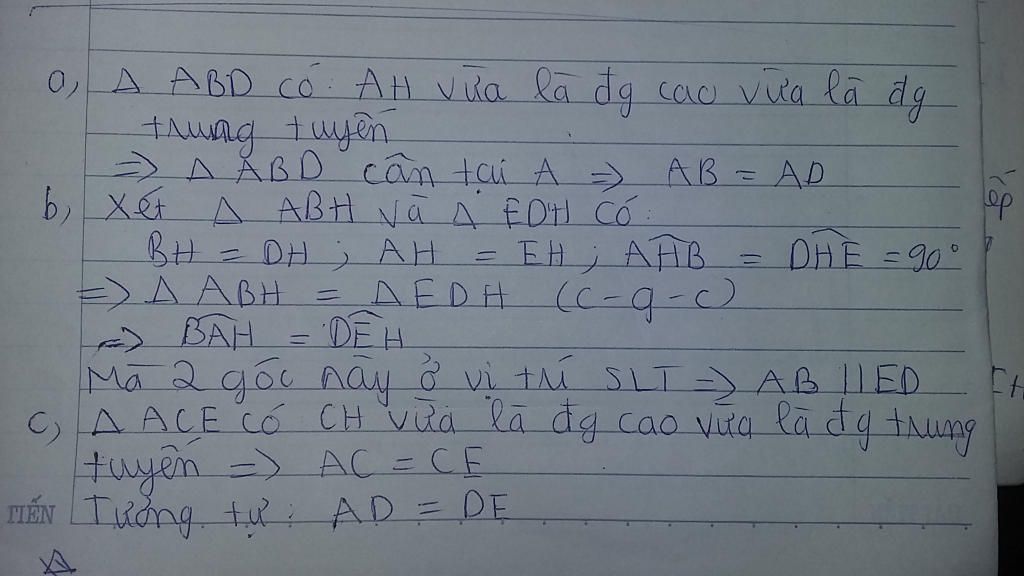 a, Δ ABD có: AH vừa là đg cao vừa là đg
trung tuyến
=> Δ ABD cân tại A => AB = AD
b, Xét Δ ABH và Δ EDH có:
BH = DH ; AH = EH ; \widehat{AHB} = \widehat{DHE} = 90°
=> Δ ABH = Δ EDH (c-g-c)
=> \widehat{BAH} = \widehat{DEH}
Mà 2 góc này ở vị trí SLT => AB || ED
c, Δ ACE có CH vừa là đg cao vừa là đg trung
tuyến => AC = CE
TIẾN Tương tự: AD = DE